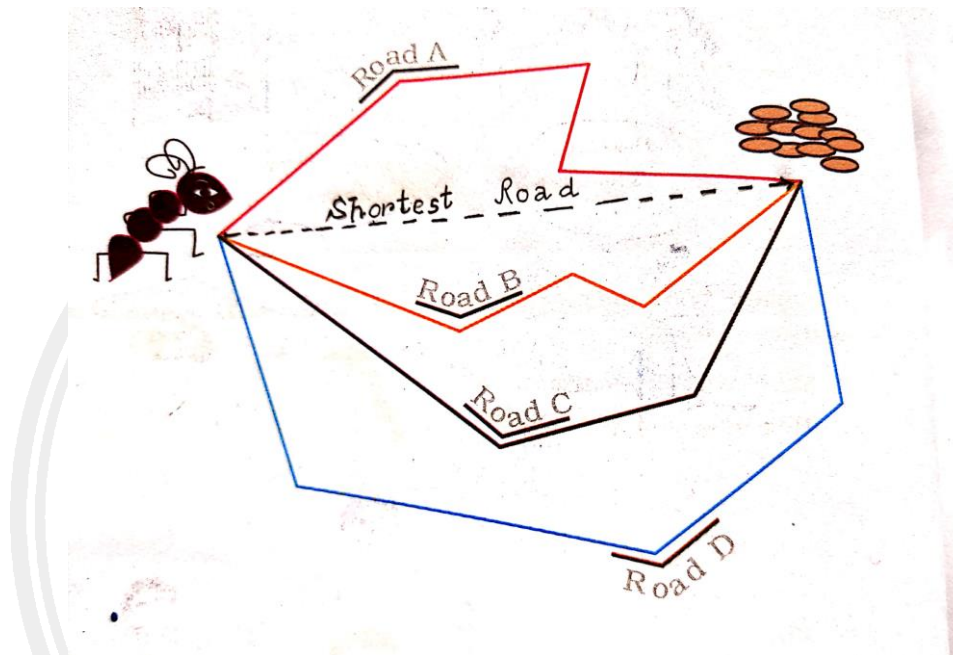 Road A
Shortest Road
Road B
Road C
Road D